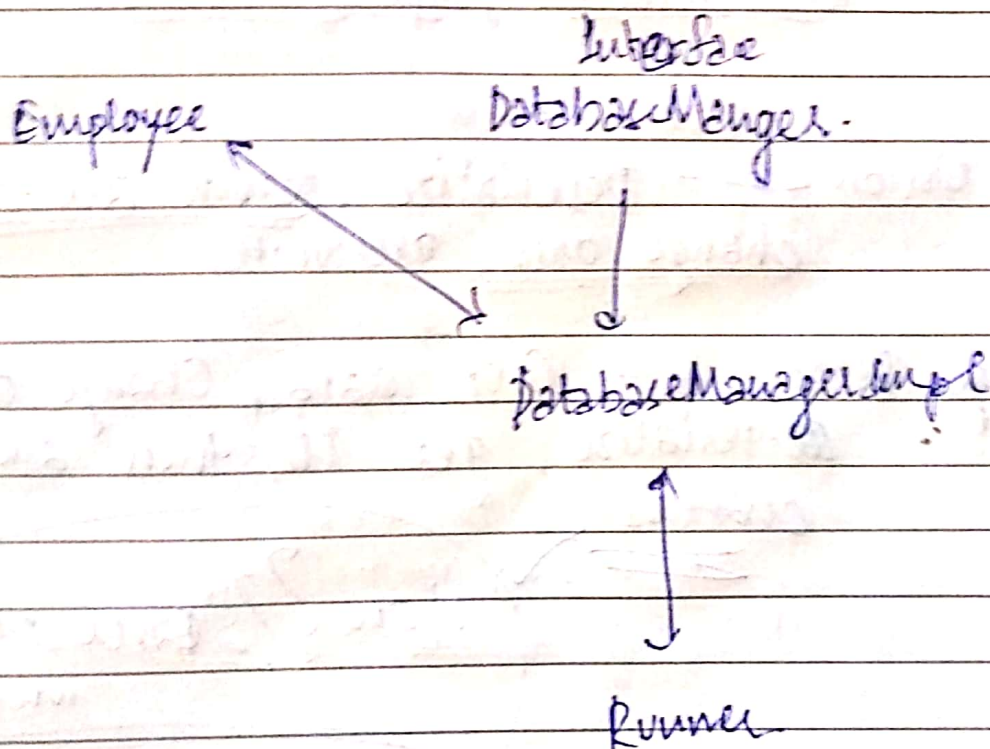 Interface
Employee DatabaseManger.
DatabaseManagerImpl
Runner